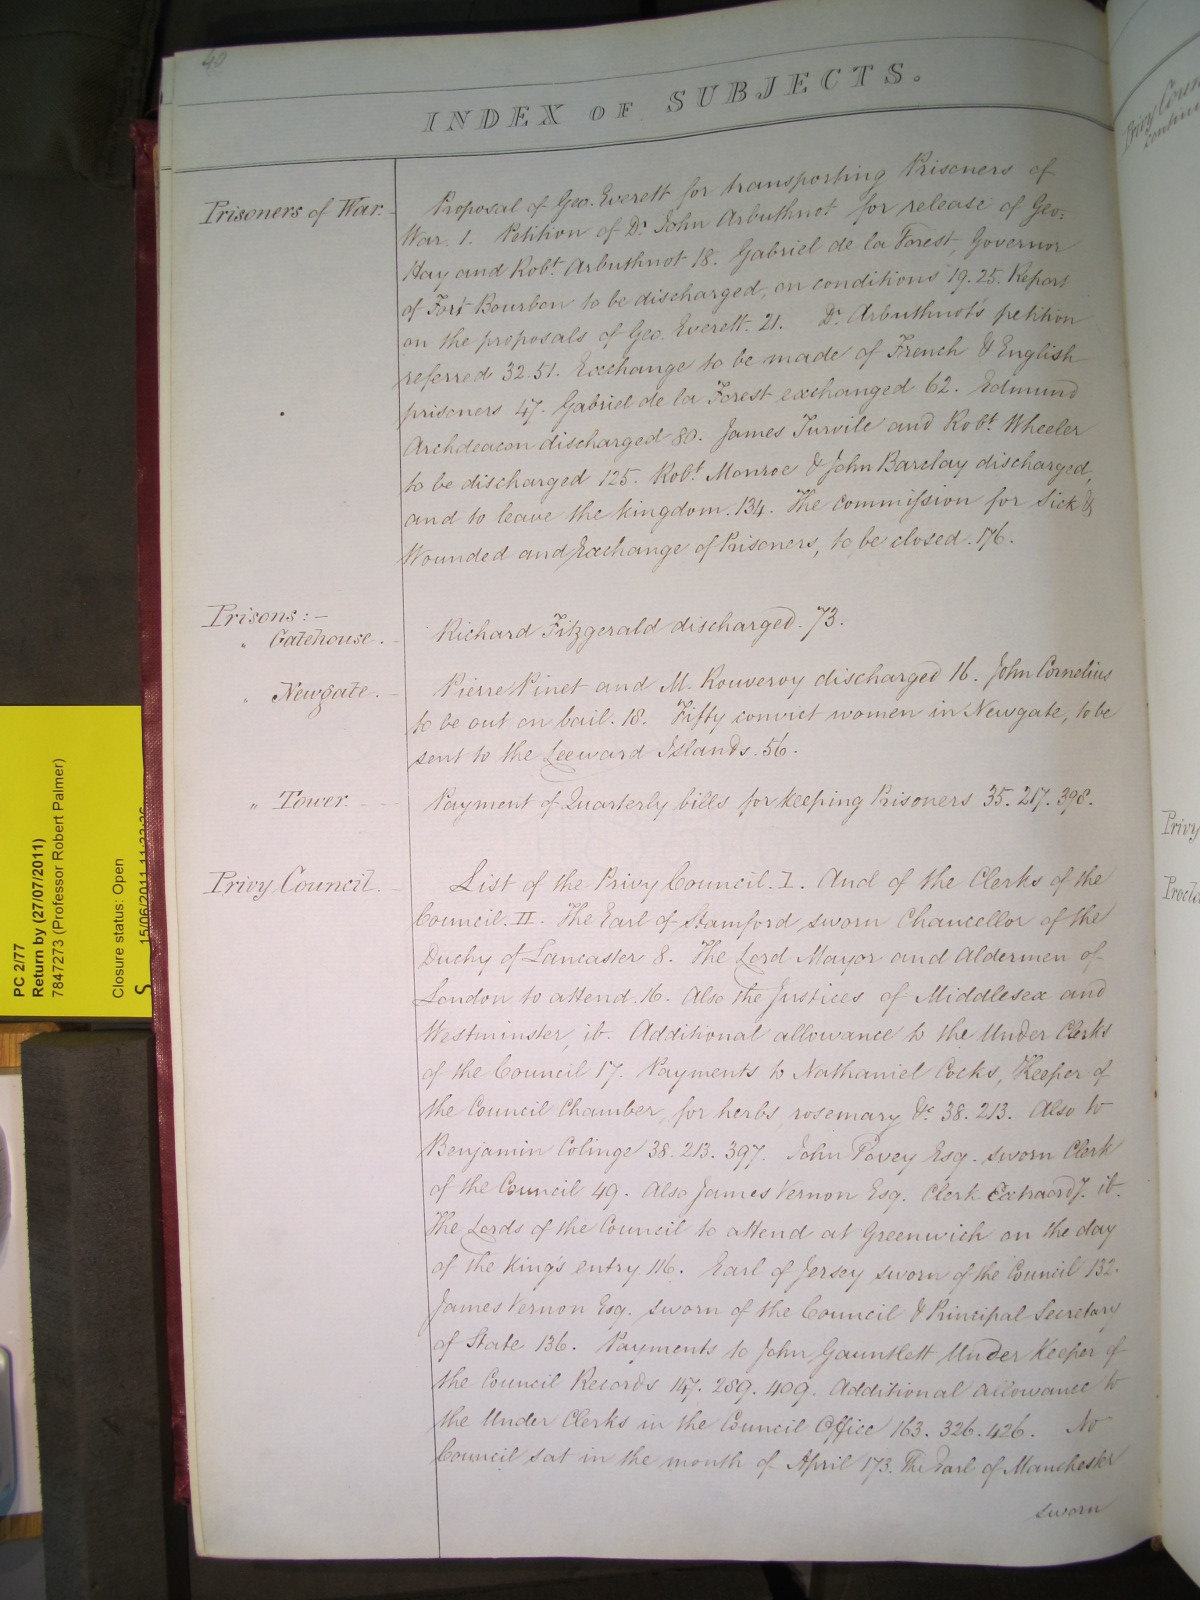 40
INDEX OF SUBJECTS.
Prisoners of War.
Proposal of Geo. Everett for transporting Prisoners of
War. 1. Petition of Dr. John Arbuthnot for release of Geo:
Hay and Robt. Arbuthnot 18. Gabriel de la Forest, Governor
of Fort Bourbon to be discharged, on conditions 19. 25. Report
on the proposals of Geo. Everett. 21. Dr. Arbuthnot's petition
referred 32. 51. Exchange to be made of French & English
prisoners 47. Gabriel de la Forest exchanged 62. Edmund
Archdeacon discharged 80. James Turvile and Robt. Wheeler
to be discharged 125. Robt. Monroe & John Barclay discharged,
and to leave the kingdom. 134. The commission for Sick &
Wounded and Exchange of Prisoners, to be closed. 176.
Prisons:-
" Gatehouse. Richard Fitzgerald discharged. 73.
" Newgate. Pierre Pinet and M. Rouveroy discharged 16. John Cornelius
to be out on bail. 18. Fifty convict women in Newgate, to be
sent to the Leeward Islands. 56.
" Tower. Payment of Quarterly bills for keeping Prisoners 35. 217. 398.
Privy Council. List of the Privy Council. I. And of the Clerks of the
Council. II. The Earl of Stamford sworn Chancellor of the
Duchy of Lancaster 8. The Lord Mayor and Aldermen of
London to attend. 16. Also the Justices of Middlesex and
Westminster, ib. Additional allowance to the Under Clerks
of the Council 17. Payments to Nathaniel Cocks, Keeper of
the Council Chamber, for herbs, rosemary &c. 38. 213. Also to
Benjamin Colinge 38. 213. 397. John Povey Esq. sworn Clerk
of the Council 49. Also James Vernon Esq. Clerk Extraordy. ib.
The Lords of the Council to attend at Greenwich on the day
of the King's entry 116. Earl of Jersey sworn of the Council 132.
James Vernon Esq. sworn of the Council & Principal Secretary
of State 136. Payments to John Gauntlett Under Keeper of
the Council Records 147. 289. 409. Additional allowance to
the Under Clerks in the Council Office 163. 326. 426. No
Council sat in the month of April 173. The Earl of Manchester
sworn
PC 2/77
Return by (27/07/2011)
7847273 (Professor Robert Palmer)
Closure status: Open
S
15/06/2011
Privy Coun
continu
Privy
Procla